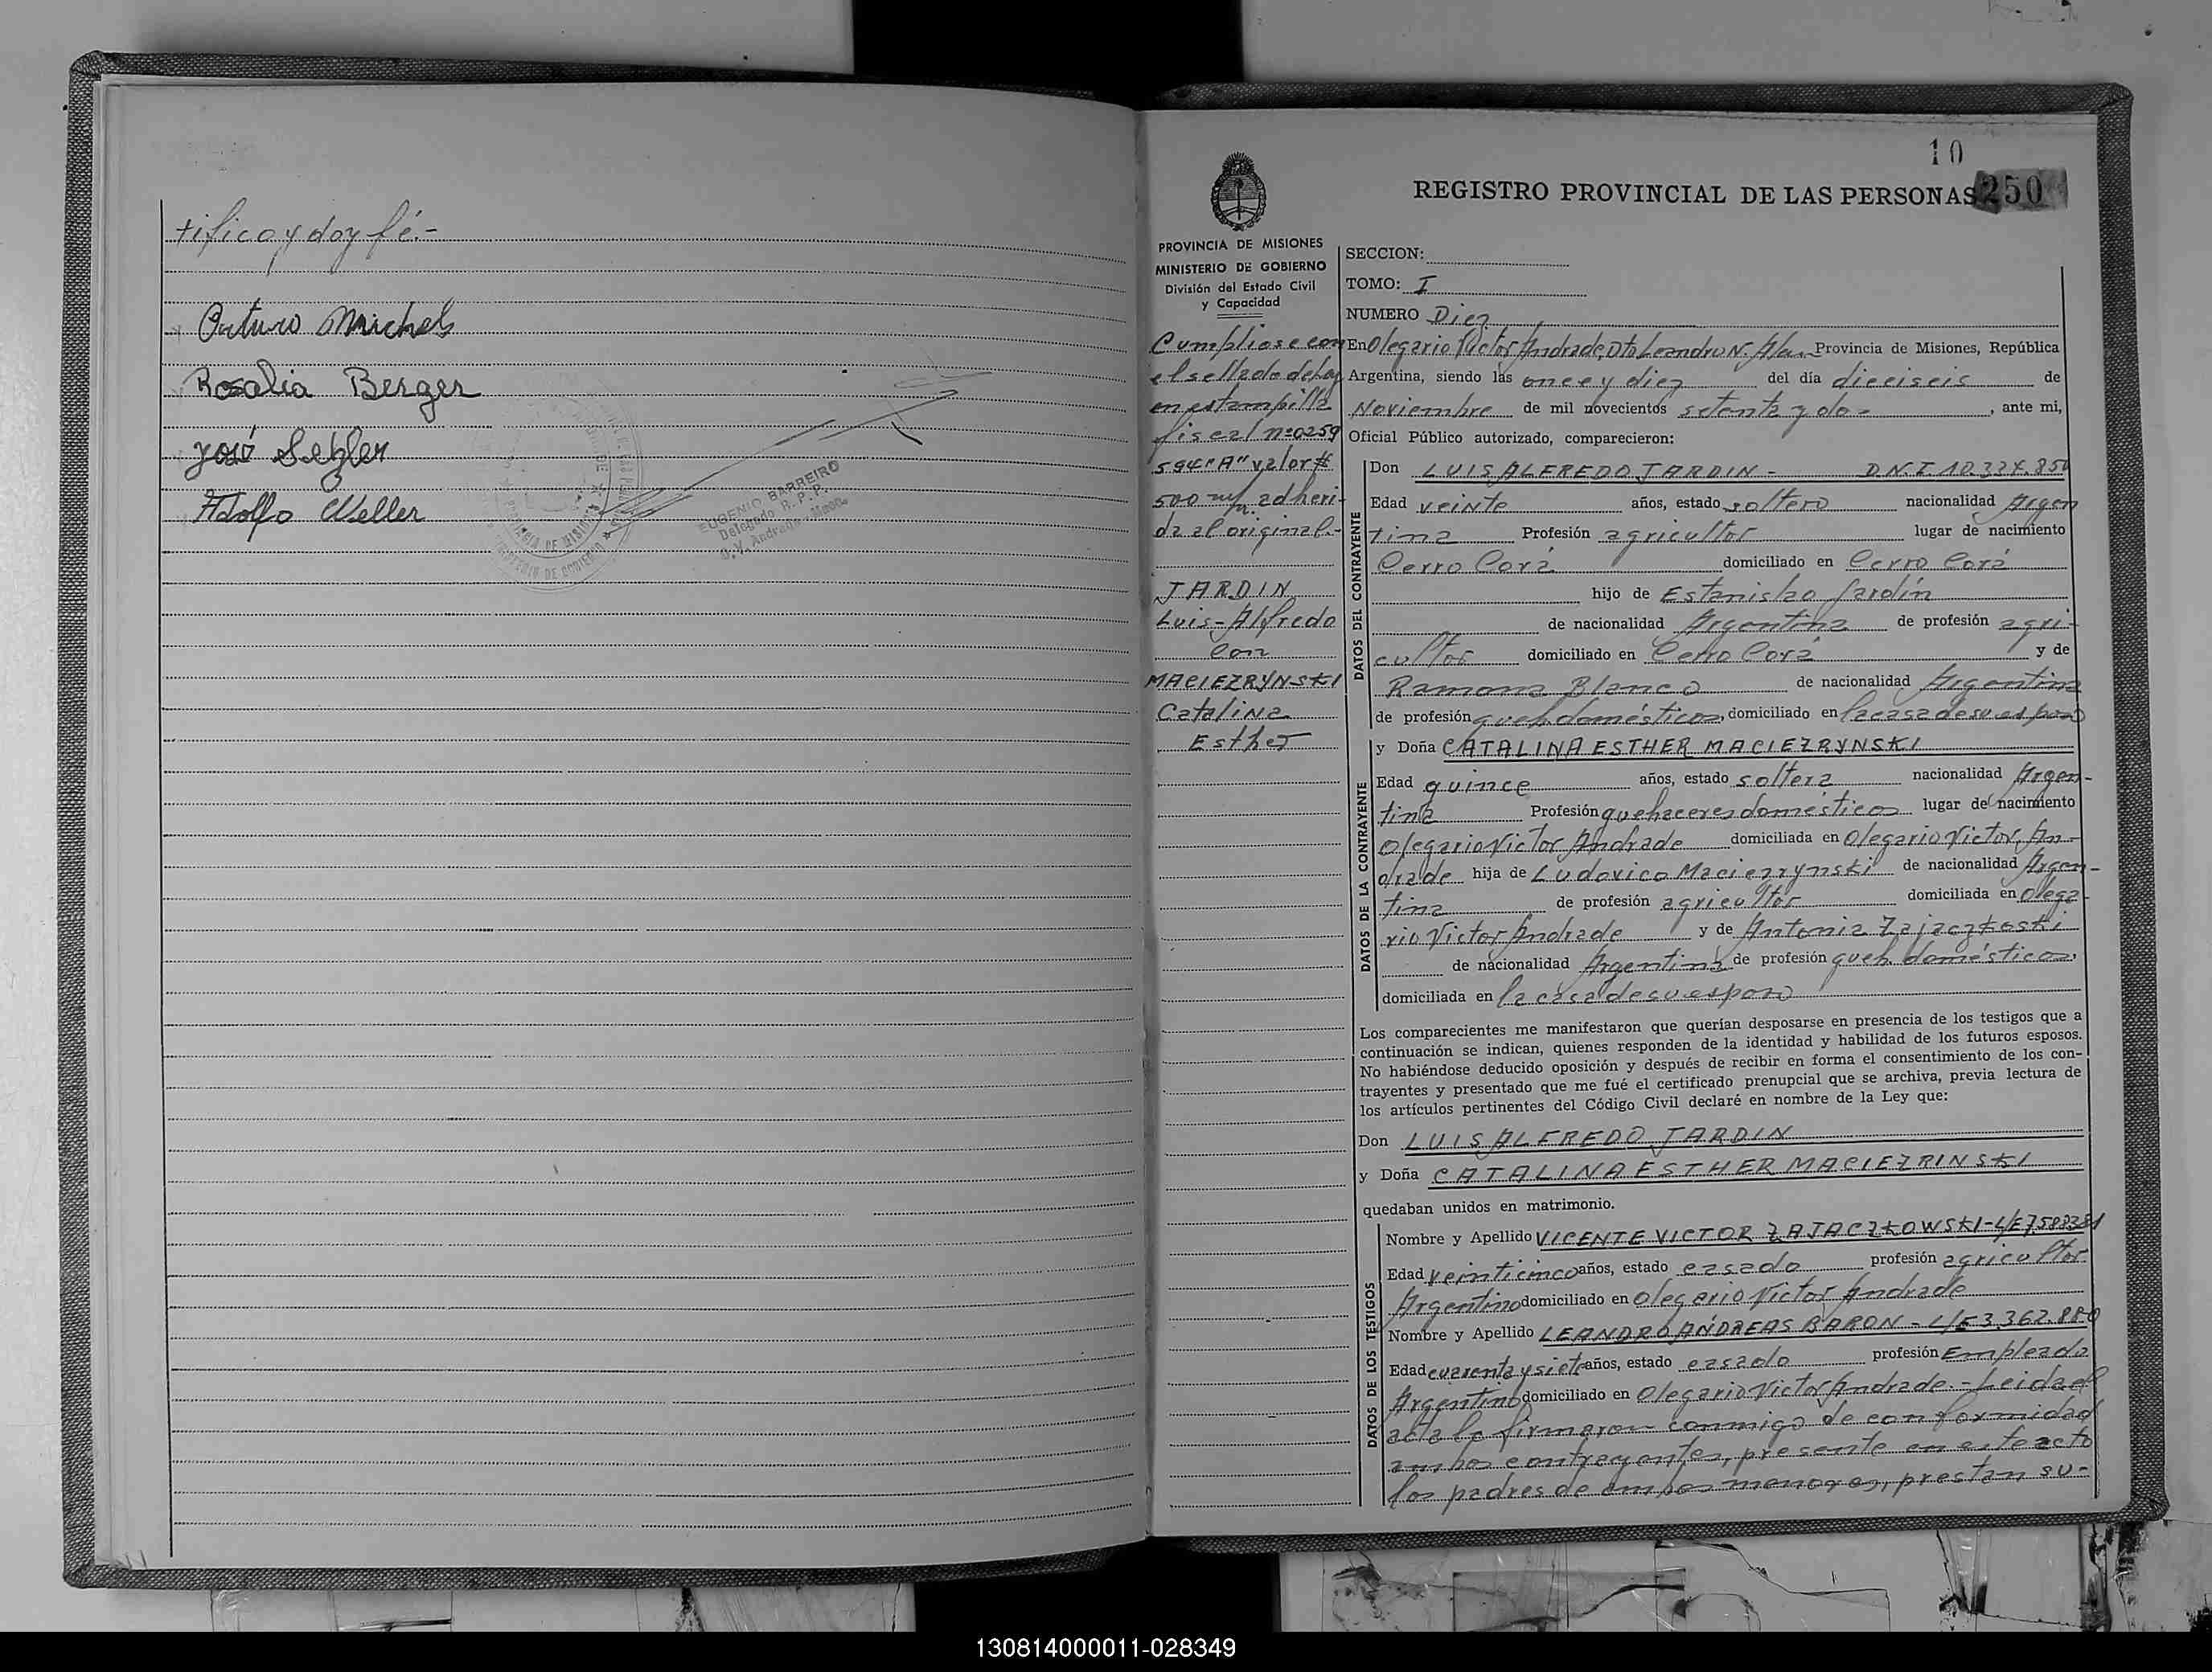 tifico y doy fé.-
Arturo Michels
Rosalia Berger
José Setzler
Adolfo Weller
EUGENIO BARREIRO
Delegado R. P. P.
O. V. Andrade - Mnes.
10
REGISTRO PROVINCIAL DE LAS PERSONAS 250
PROVINCIA DE MISIONES
MINISTERIO DE GOBIERNO
División del Estado Civil
y Capacidad
Cumpliose con
el sellado de Ley
en estampilla
fiscal nº 0259
594 "A" valor $
500 m/n adheri-
da al original.-
JARDIN
Luis-Alfredo
con
MACIEZRYNSKI
Catalina
Esther
SECCION:
TOMO: I
NUMERO Diez
En Olegario Victor Andrade, Dto Leandro N. Alem Provincia de Misiones, República
Argentina, siendo las once y diez del día dieciseis de
Noviembre de mil novecientos setenta y dos , ante mi,
Oficial Público autorizado, comparecieron:
DATOS DEL CONTRAYENTE
Don LUIS ALFREDO JARDIN - D.N.I 10.334.850
Edad veinte años, estado soltero nacionalidad Argen
tina Profesión agricultor lugar de nacimiento
Cerro Corá domiciliado en Cerro Corá
hijo de Estanislao Jardín
de nacionalidad Argentina de profesión agri-
cultor domiciliado en Cerro Corá y de
Ramona Blanco de nacionalidad Argentina
de profesión queh. domésticos, domiciliado en la casa de su esposo
DATOS DE LA CONTRAYENTE
y Doña CATALINA ESTHER MACIEZRYNSKI
Edad quince años, estado soltera nacionalidad Argen-
tina Profesión quehaceres domesticos lugar de nacimiento
Olegario Victor Andrade domiciliada en Olegario Victor An-
drade hija de Ludovico Maciezrynski de nacionalidad Argen-
tina de profesión agricultor domiciliada en Olega-
rio Victor Andrade y de Antonia Zajaczkoski
de nacionalidad Argentina de profesión queh. domésticos,
domiciliada en la casa de su esposo
Los comparecientes me manifestaron que querían desposarse en presencia de los testigos que a
continuación se indican, quienes responden de la identidad y habilidad de los futuros esposos.
No habiéndose deducido oposición y después de recibir en forma el consentimiento de los con-
trayentes y presentado que me fué el certificado prenupcial que se archiva, previa lectura de
los artículos pertinentes del Código Civil declaré en nombre de la Ley que:
Don LUIS ALFREDO JARDIN
y Doña CATALINA ESTHER MACIEZRINSKI
quedaban unidos en matrimonio.
DATOS DE LOS TESTIGOS
Nombre y Apellido VICENTE VICTOR ZAJACZKOWSKI-L/E 7.588381
Edad veinticinco años, estado casado profesión agricultor
Argentino domiciliado en Olegario Victor Andrade
Nombre y Apellido LEANDRO ANDREAS BARON - L/E 3.362.880
Edad cuarenta y siete años, estado casado profesión Empleado
Argentino domiciliado en Olegario Victor Andrade.- Leida el
acta la firmaron conmigo de conformidad
ambos contrayentes, presente en este acto
los padres de ambos menores, prestan su-
130814000011-028349